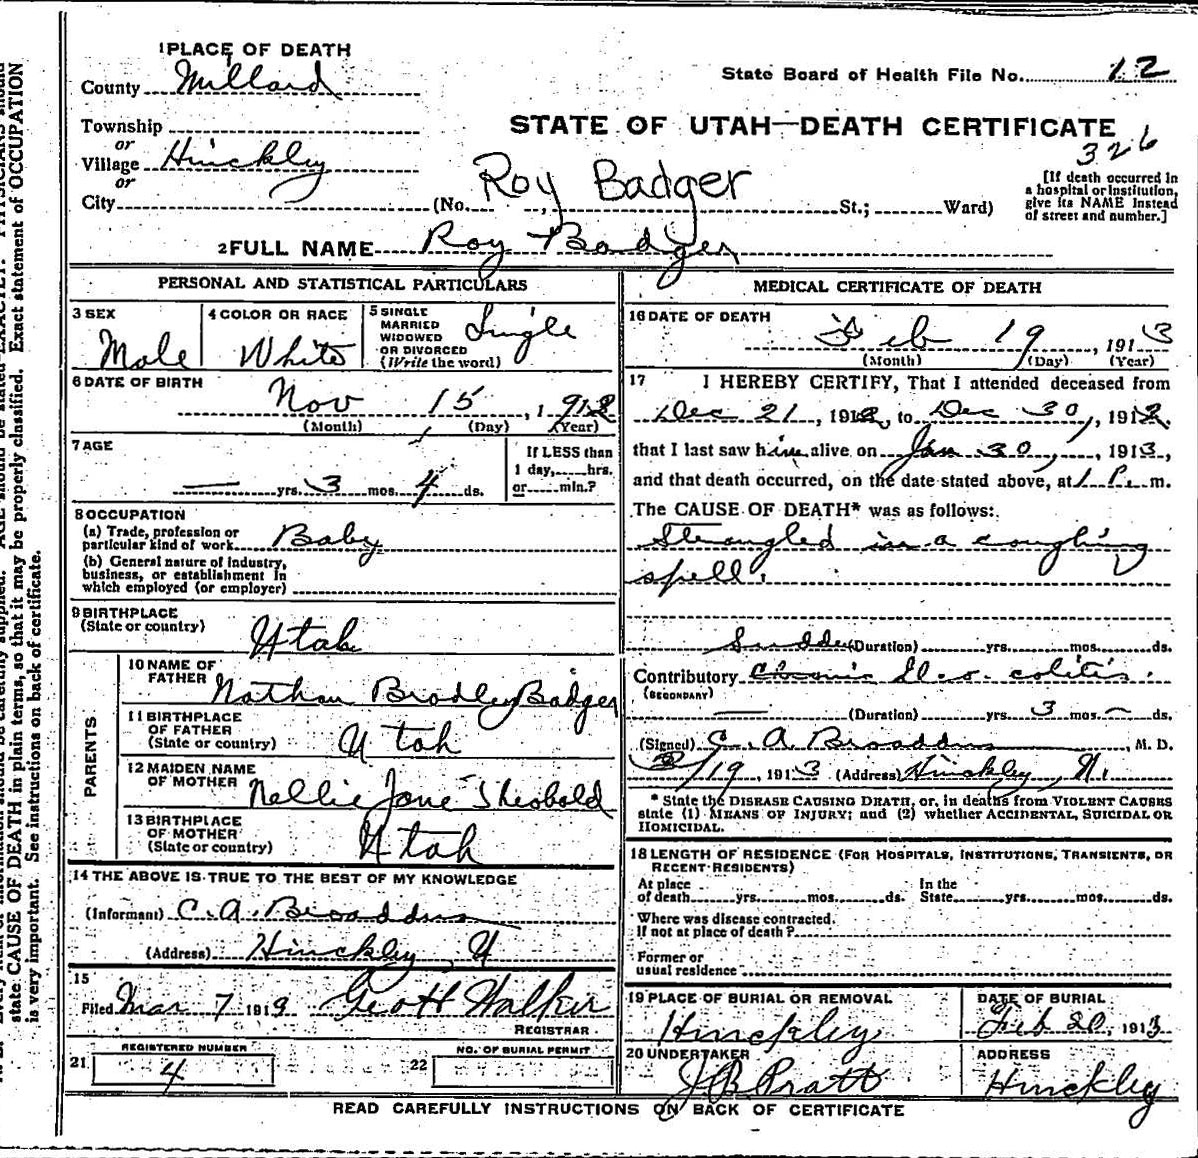 1 PLACE OF DEATH
County Millard
State Board of Health File No. 12
Township
or
Village Hinckley
or
City
STATE OF UTAH—DEATH CERTIFICATE
326
(No. , St.; Ward)
Roy Badger
[If death occurred in
a hospital or institution,
give its NAME instead
of street and number.]
2 FULL NAME Roy Badger
PERSONAL AND STATISTICAL PARTICULARS
3 SEX
Male
4 COLOR OR RACE
White
5 SINGLE
MARRIED
WIDOWED
OR DIVORCED
(Write the word)
Single
6 DATE OF BIRTH
Nov 15, 1912
(Month) (Day) (Year)
7 AGE
— yrs. 3 mos. 4 ds.
If LESS than
1 day, hrs.
or min.?
8 OCCUPATION
(a) Trade, profession or
particular kind of work Baby
(b) General nature of industry,
business, or establishment in
which employed (or employer)
9 BIRTHPLACE
(State or country)
Utah
PARENTS
10 NAME OF
FATHER
Nathan Bradley Badger
11 BIRTHPLACE
OF FATHER
(State or country)
Utah
12 MAIDEN NAME
OF MOTHER
Nellie Jane Theobold
13 BIRTHPLACE
OF MOTHER
(State or country)
Utah
14 THE ABOVE IS TRUE TO THE BEST OF MY KNOWLEDGE
(Informant) C. A. Broaddus
(Address) Hinckley, U
15
Filed Mar 7 1919 Geo H Walker
REGISTRAR
21 REGISTERED NUMBER
4
22 NO. OF BURIAL PERMIT
MEDICAL CERTIFICATE OF DEATH
16 DATE OF DEATH
Feb 19, 1913
(Month) (Day) (Year)
17 I HEREBY CERTIFY, That I attended deceased from
Dec 21, 1912, to Dec 30, 1912.
that I last saw him alive on Jan 30, 1913,
and that death occurred, on the date stated above, at 1 P. m.
The CAUSE OF DEATH* was as follows:
Strangled in a coughing
spell.
Sudden (Duration) yrs. mos. ds.
Contributory Chronic Ileo colitis.
(SECONDARY)
— (Duration) yrs. 3 mos. — ds.
(Signed) C. A. Broaddus, M. D.
2/19, 1913 (Address) Hinckley, U.
* State the DISEASE CAUSING DEATH, or, in deaths from VIOLENT CAUSES
state (1) MEANS OF INJURY; and (2) whether ACCIDENTAL, SUICIDAL OR
HOMICIDAL.
18 LENGTH OF RESIDENCE (FOR HOSPITALS, INSTITUTIONS, TRANSIENTS, OR
RECENT RESIDENTS)
At place
of death yrs. mos. ds.
In the
State yrs. mos. ds.
Where was disease contracted.
If not at place of death?
Former or
usual residence
19 PLACE OF BURIAL OR REMOVAL
Hinckley
DATE OF BURIAL
Feb 20, 1913
20 UNDERTAKER
J B Pratt
ADDRESS
Hinckley
READ CAREFULLY INSTRUCTIONS ON BACK OF CERTIFICATE
state CAUSE OF DEATH in plain terms, so that it may be properly classified. Exact statement of OCCUPATION
is very important. See instructions on back of certificate.